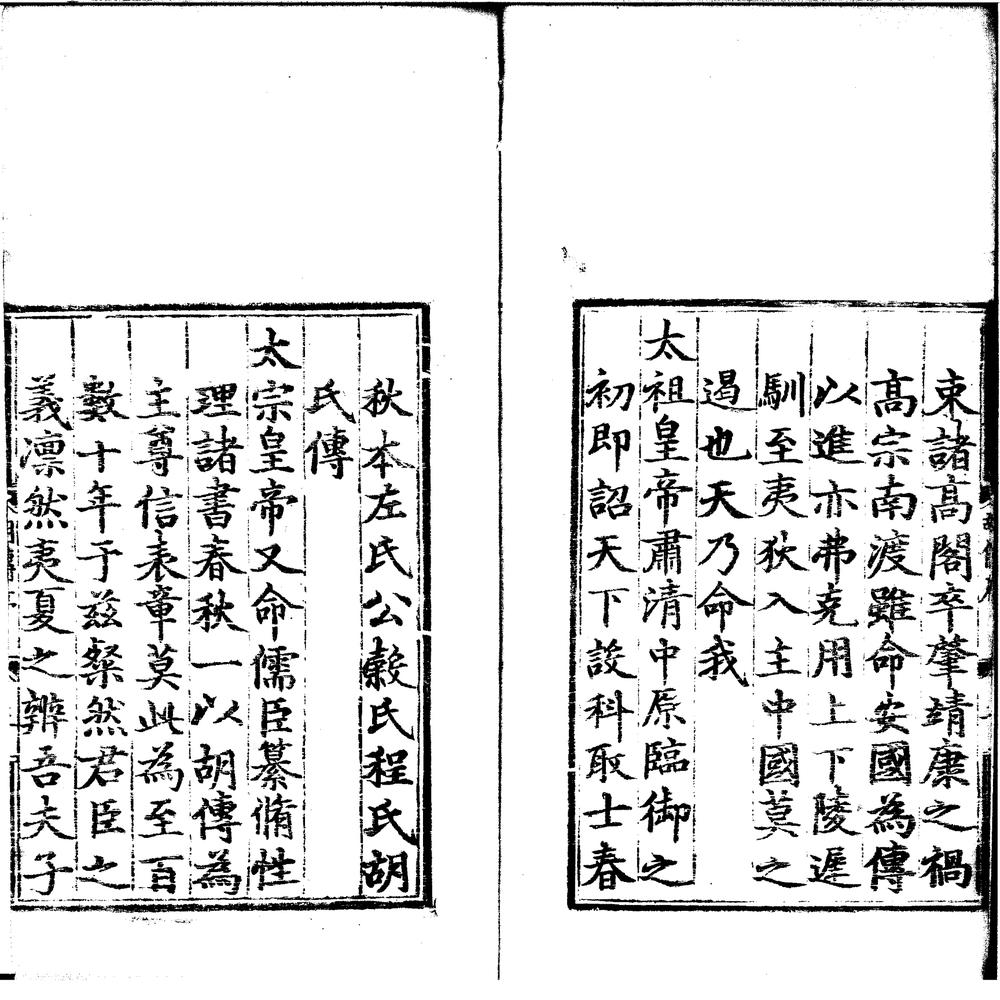 東諸高閣卒肇靖康之禍
高宗南渡雖命安國為傳
以進亦弗克用上下陵遲
馴至夷狄入主中國莫之
遏也天乃命我
太祖皇帝肅清中原臨御之
初即詔天下設科取士春
秋本左氏公糓氏程氏胡
氏傳
太宗皇帝又命儒臣纂脩性
理諸書春秋一以胡傳為
主尊信表章莫此為至百
數十年于茲粲然君臣之
義凛然夷夏之辨吾夫子